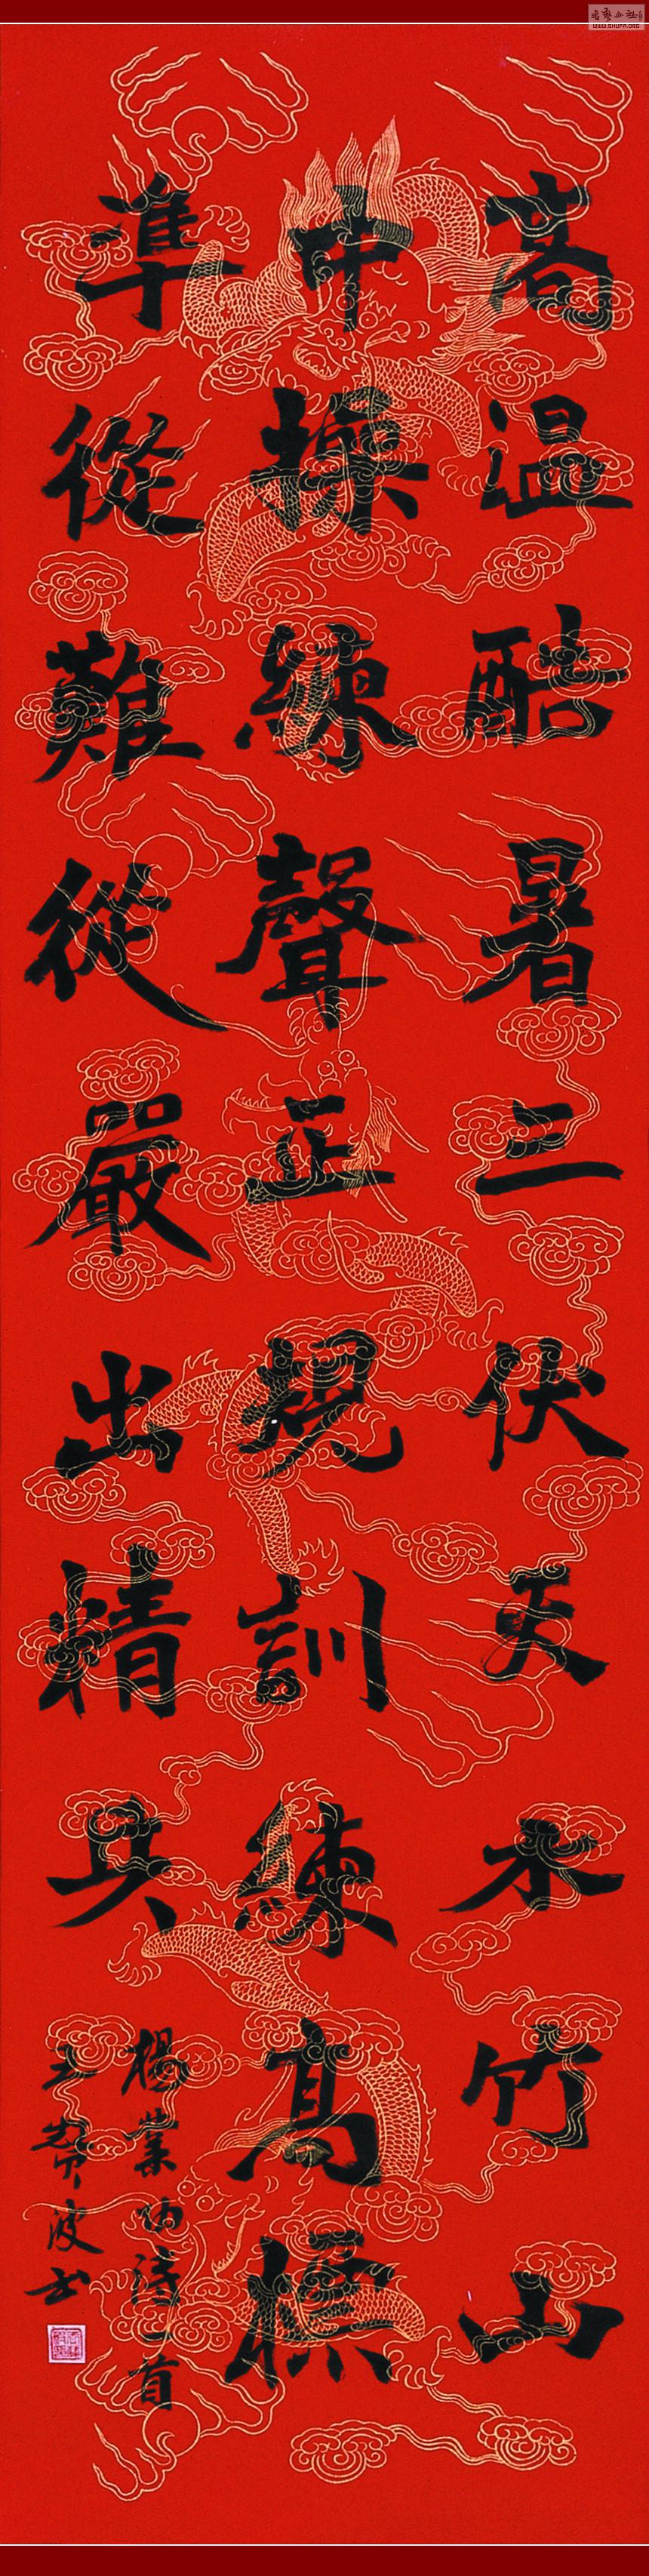 高溫酷暑三伏天水竹山
中操練聲正規訓練高標
準從難從嚴出精兵
楊業功詩一首
王波书
WWW.SHUFA.ORG